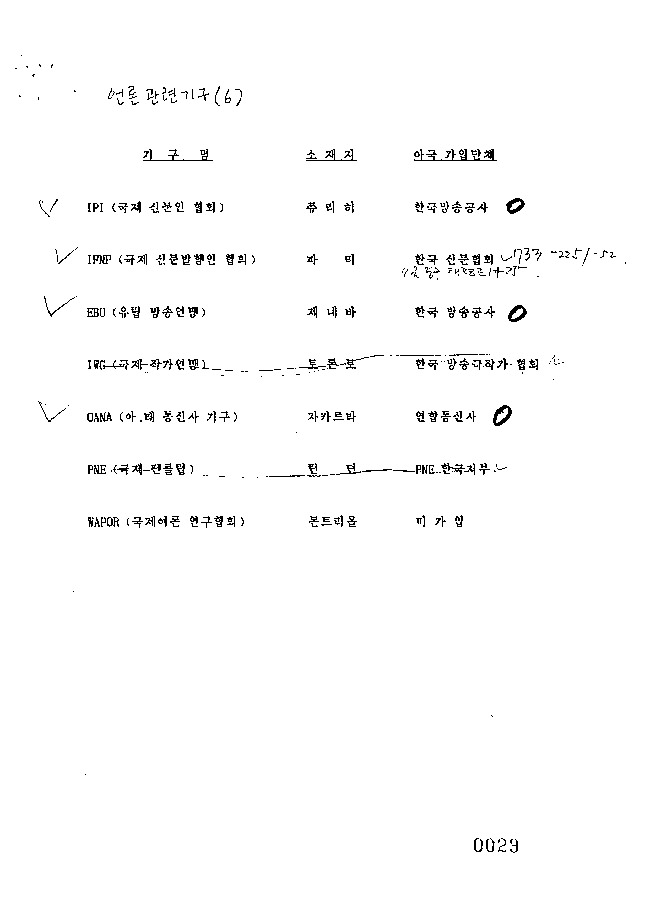 언론관련기구(6)
기 구 명 소 재 지 아국 가입단체
IPI (국제 신문인 협회) 쮸 리 히 한국방송공사
IFNP (국제 신문발행인 협회) 파 리 한국 신문협회 733-2251-52
EBU (유럽 방송연맹) 제 네 바 한국 방송공사
IWG (국제 작가연맹) 토 론 토 한국 방송극작가 협회
OANA (아.태 통신사 기구) 자카르타 연합통신사
PNE (국제 펜클럽) 런 던 PNE 한국지부
WAPOR (국제여론 연구협회) 몬트리올 미 가 입
0029